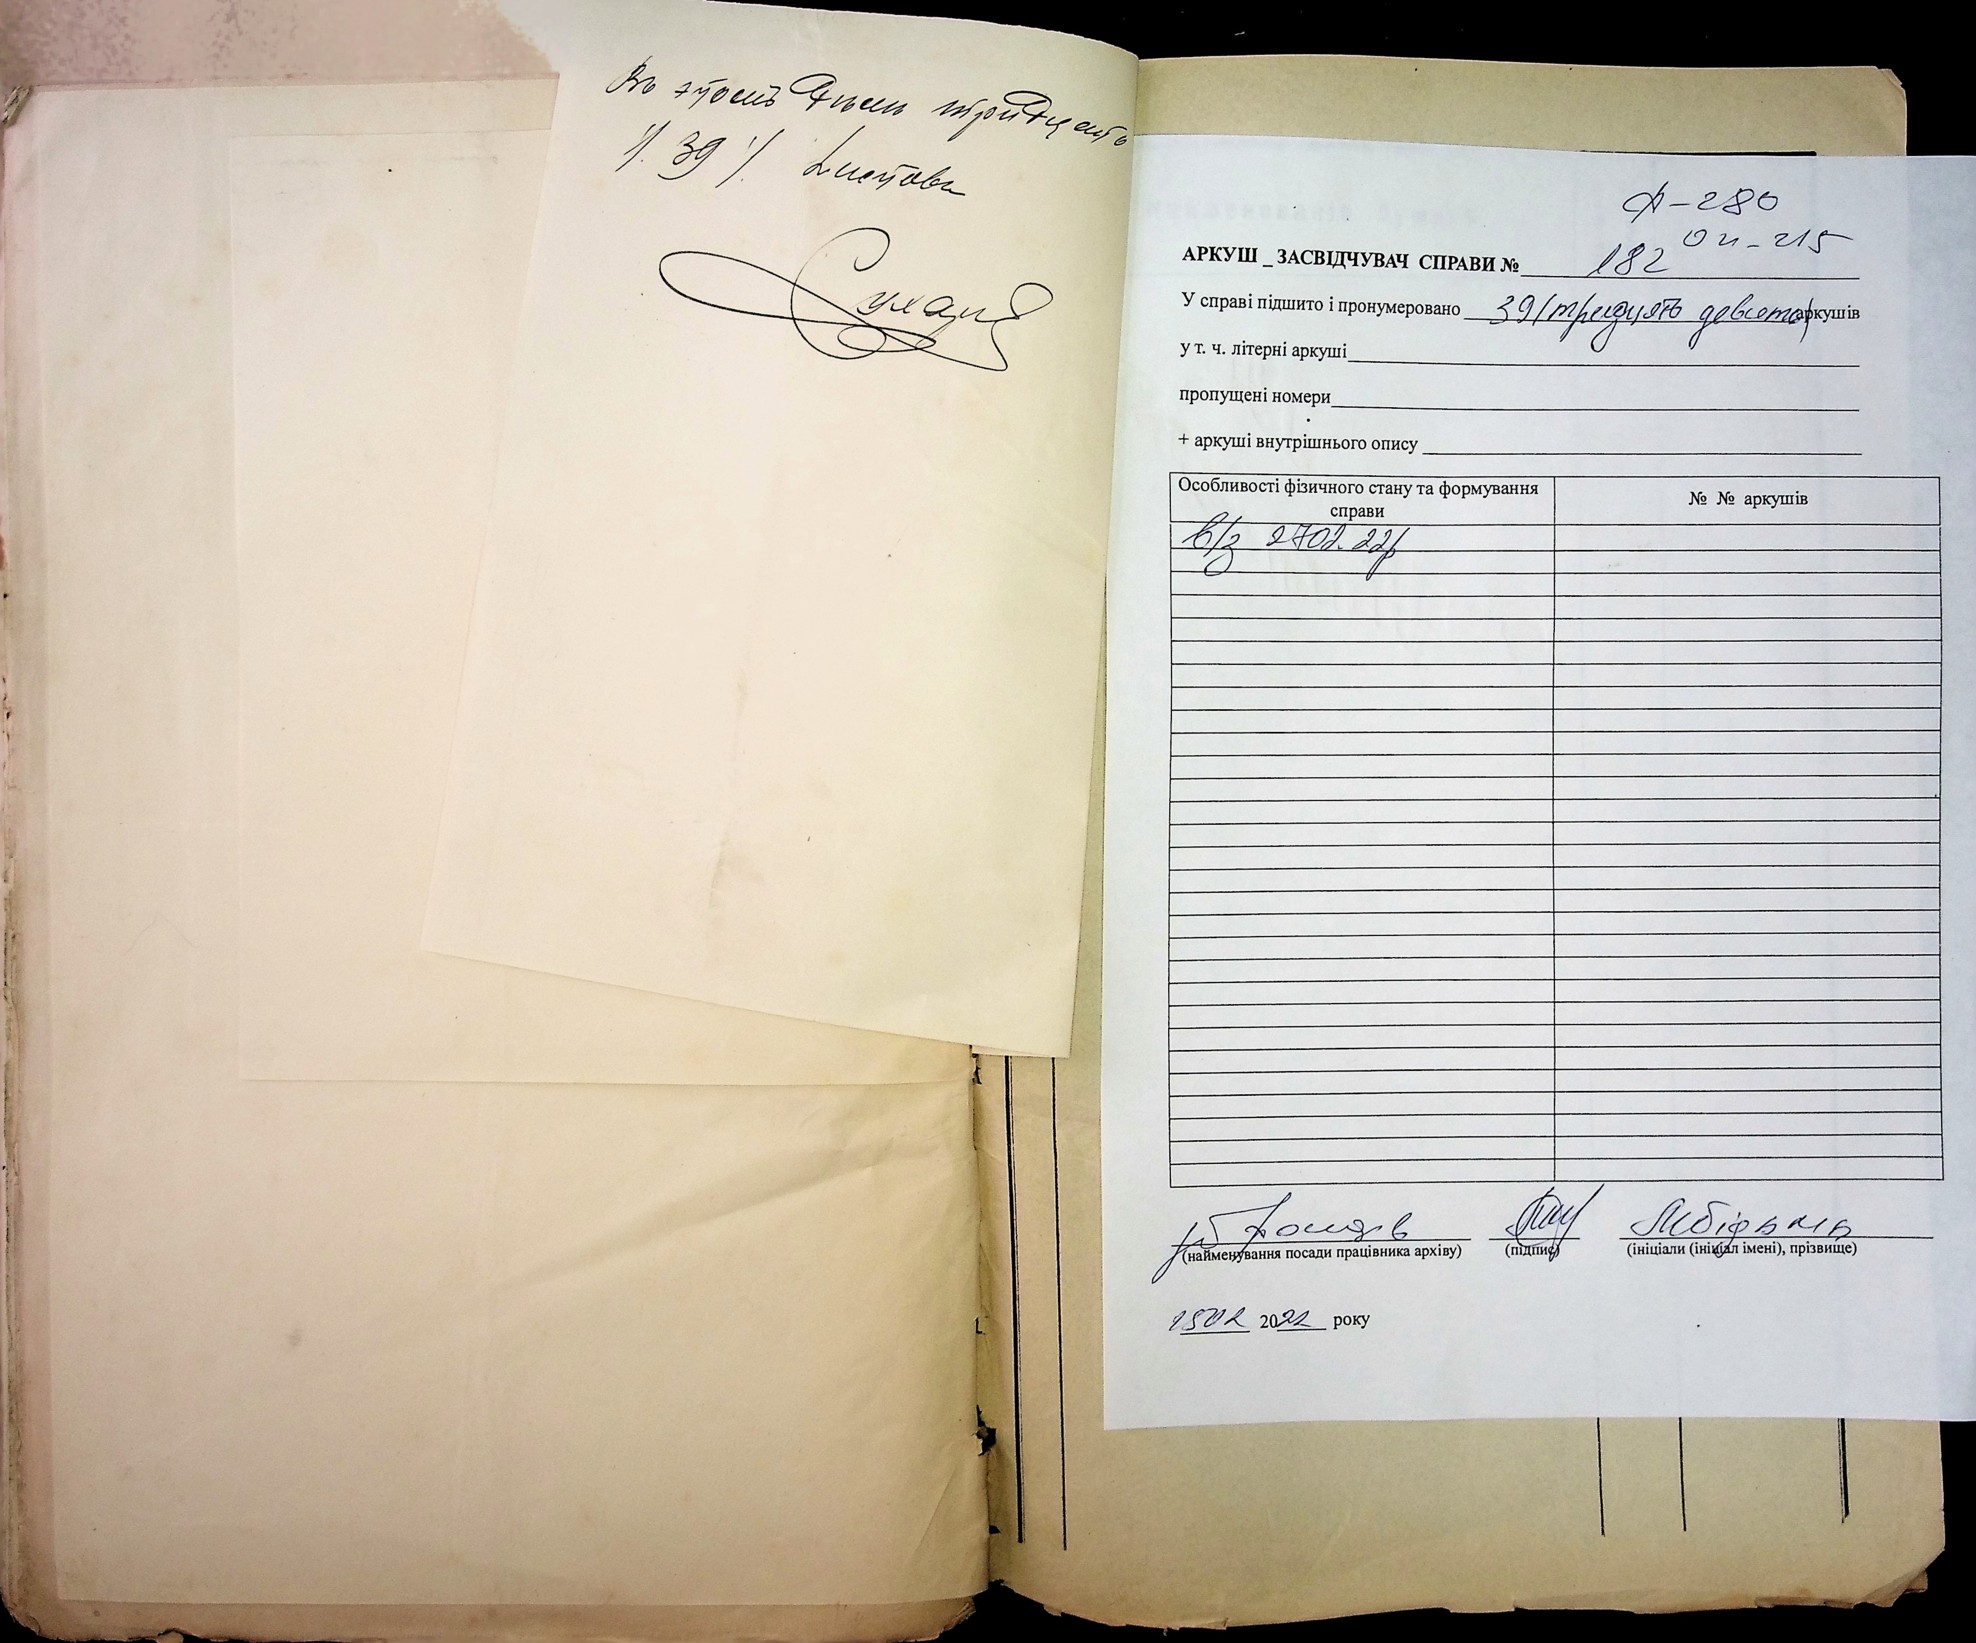 Въ этомъ дѣлѣ тридцать
/. 39 /. листовъ
Ф-280
оп-215
АРКУШ _ ЗАСВІДЧУВАЧ СПРАВИ № 182
У справі підшито і пронумеровано 39(тридцять дев'ять) аркушів
у т. ч. літерні аркуші
пропущені номери
+ аркуші внутрішнього опису
Особливості фізичного стану та формування справи
№ № аркушів
в/з
(найменування посади працівника архіву) (підпис) (ініціали (ініціал імені), прізвище)
2022 року